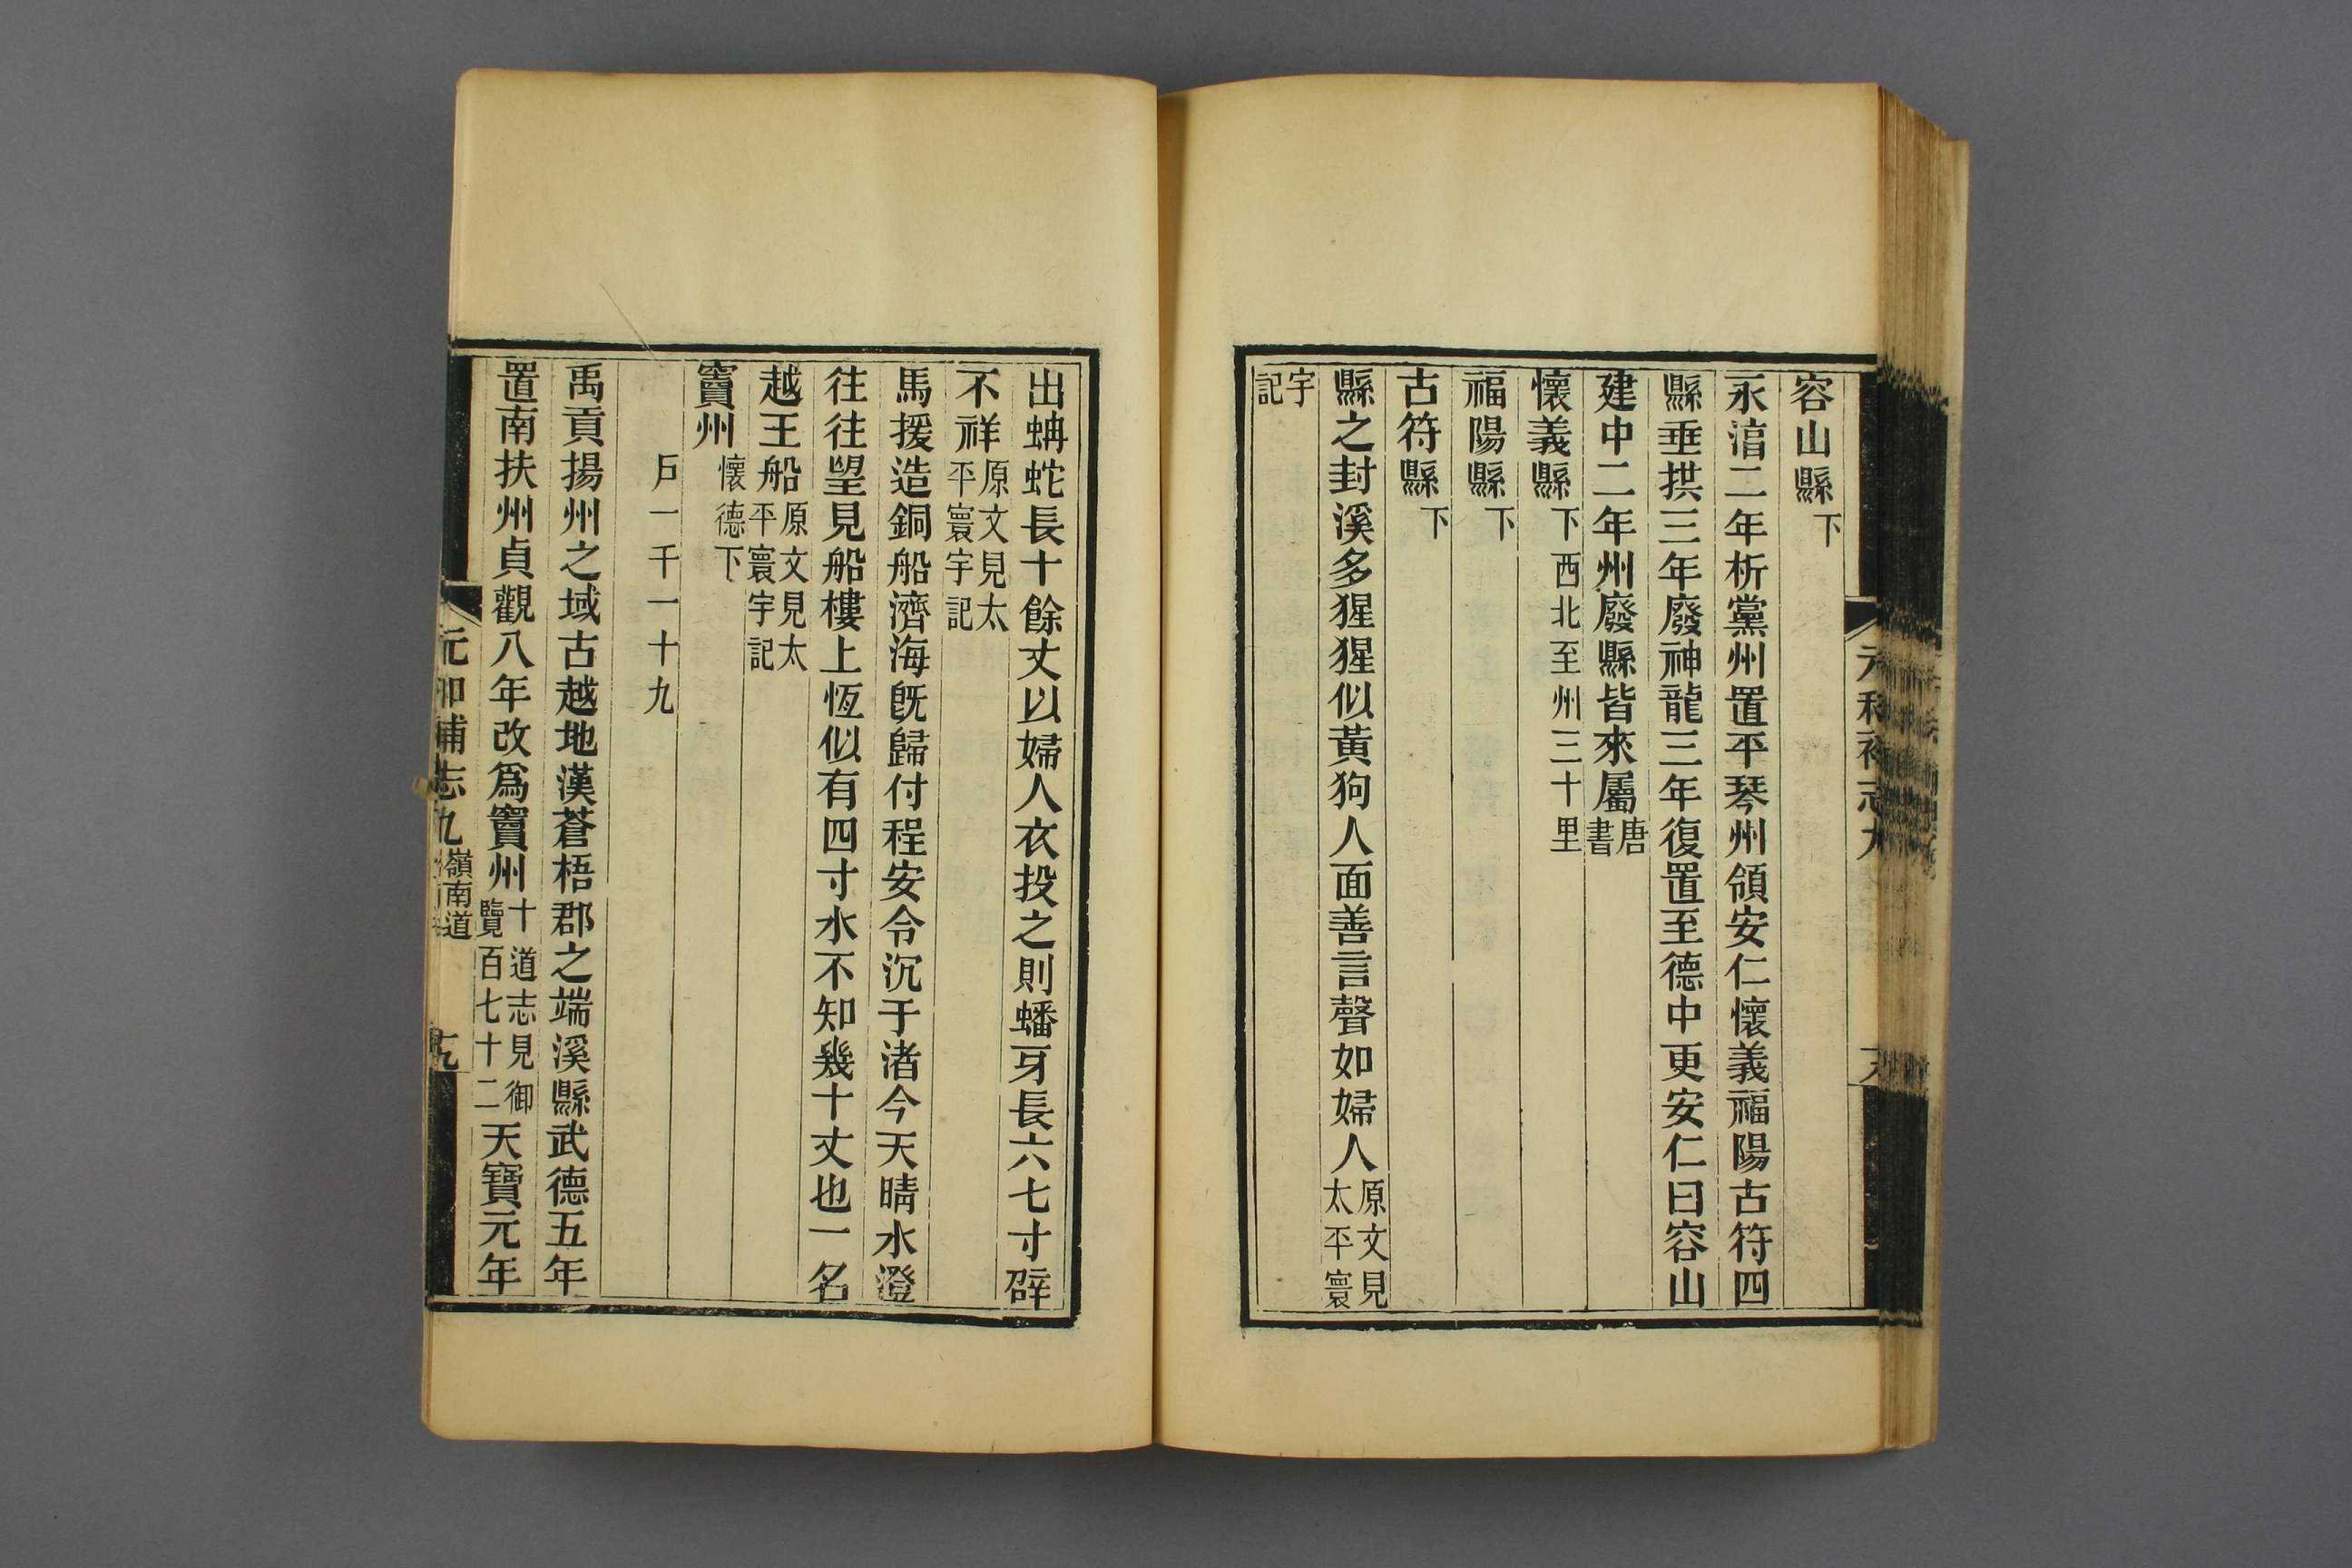 容山縣下
永淳二年析黨州置平琴州領安仁懷義福陽古符四
縣垂拱三年廢神龍三年復置至德中更安仁曰容山
建中二年州廢縣皆來屬唐書
懷義縣下西北至州三十里
福陽縣下
古符縣下
縣之封溪多猩猩似黃狗人面善言聲如婦人原文見太平寰
宇記
出蚺蛇長十餘丈以婦人衣投之則蟠牙長六七寸辟
不祥原文見太平寰宇記
馬援造銅船濟海旣歸付程安令沉于渚今天晴水澄
往往望見船樓上恆似有四寸水不知幾十丈也一名
越王船原文見太平寰宇記
竇州懷德下
戶一千一十九
禹貢揚州之域古越地漢蒼梧郡之端溪縣武德五年
置南扶州貞觀八年改爲竇州十道志見御覽百七十二天寶元年
元和補志九嶺南道
九